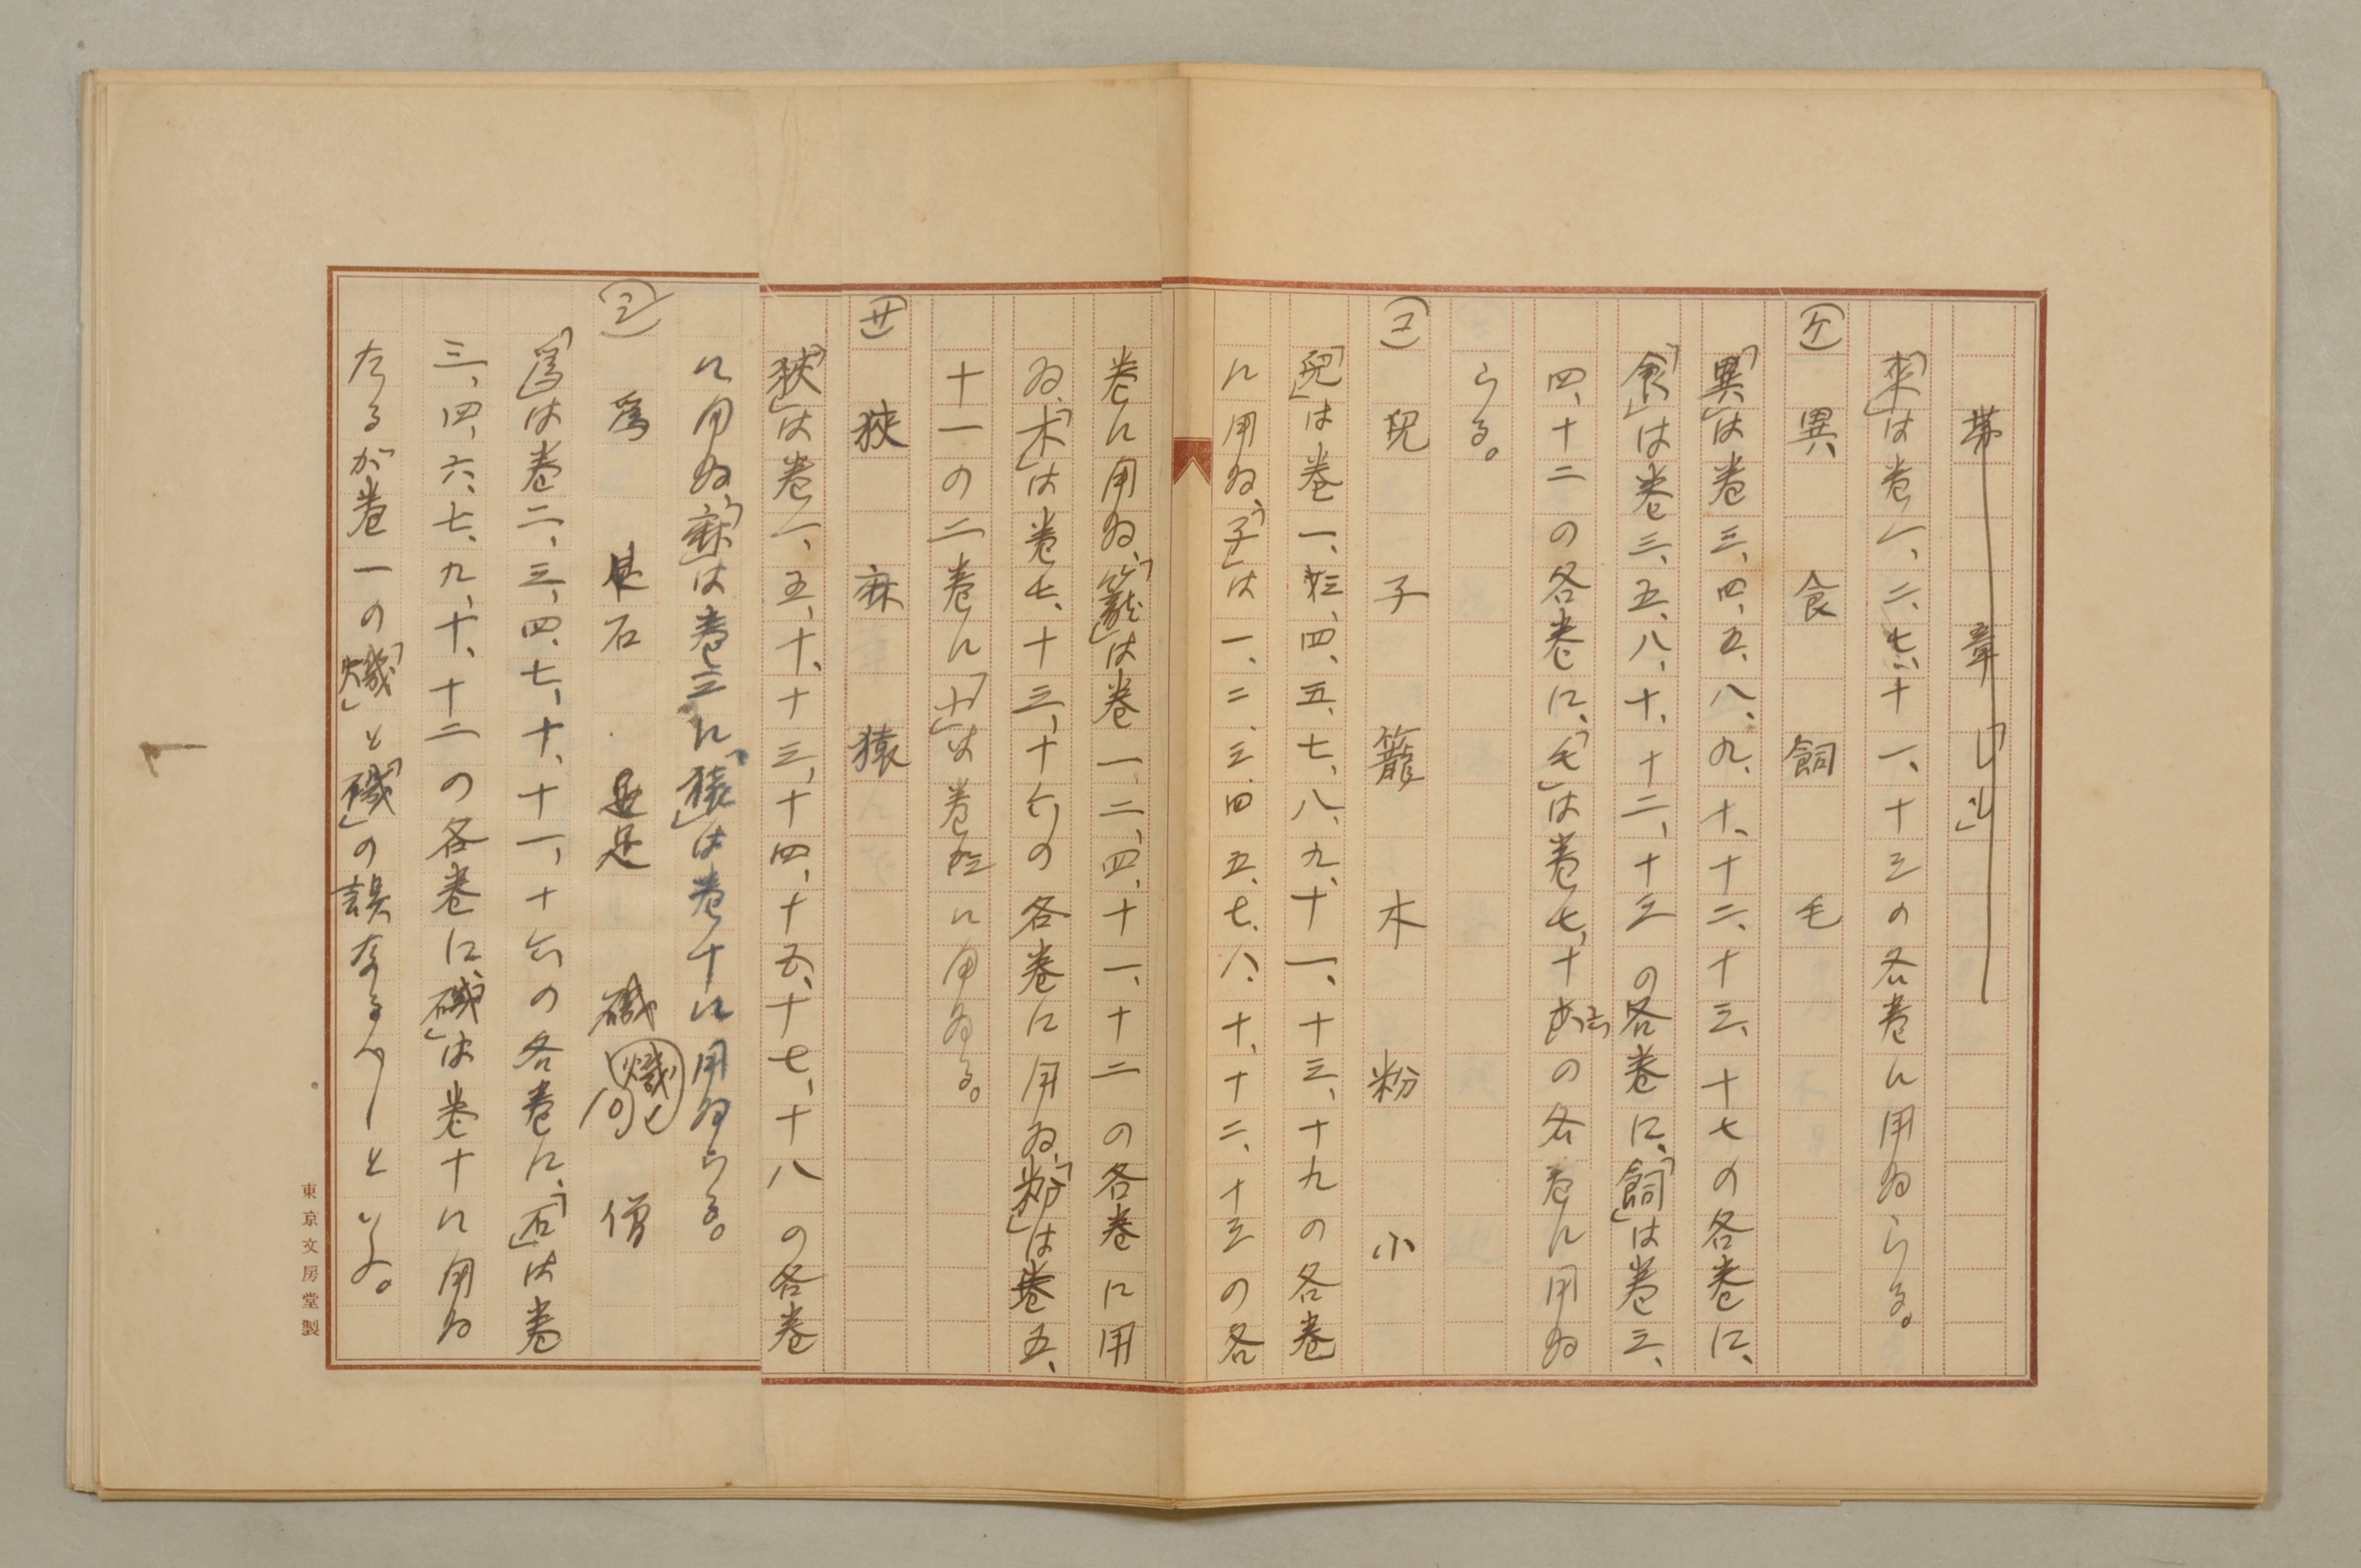 「来」は巻一、二、十一、十三の各巻に用ゐらる。
(ケ) 異 食 飼 毛
「異」は巻三、四、五、八、九、十、十二、十三、十七の各巻に、
「食」は巻三、五、八、十、十二、十三の各巻に、「飼」は巻三、
四、十二の各巻に、「毛」は巻七、十の各巻に用ゐ
らる。
(コ) 児 子 籠 木 粉 小
「児」は巻一、三、四、五、七、八、九、十一、十三、十九の各巻
に用ゐ、「子」は一、二、三、四、五、七、八、十、十二、十三の各
巻に用ゐ、「籠」は巻一、二、四、十一、十二の各巻に用
ゐ、「木」は巻七、十三、十六の各巻に用ゐ、「粉」は巻五、
十一の二巻に「小」は巻に用ゐる。
(サ) 狭 麻 猿
「狭」は巻一、五、十、十三、十四、十五、十七、十八の各巻
に用ゐ、「麻」は巻三に、「猿」は巻十に用ゐらる。
(シ) 爲 石 足 磯 僧
「爲」は巻二、三、四、七、十、十一、十六の各巻に、「石」は巻
三、四、六、七、九、十、十二の各巻に、「磯」は巻十に用ゐ
たるが巻一の「熾」と「磯」の誤なるべしといふ。
東京文房堂製